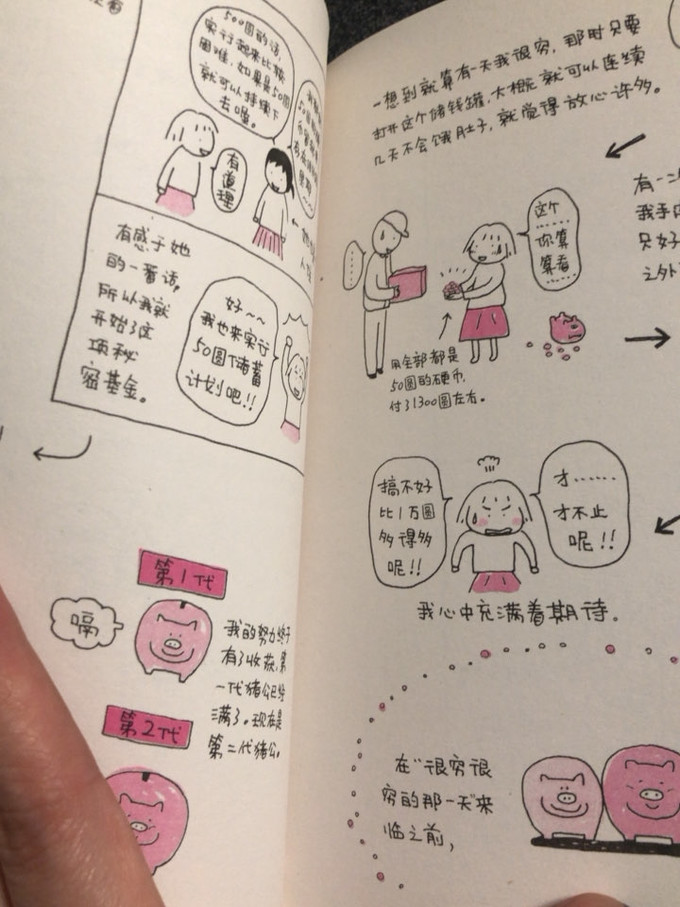 500圆的话,
实行起来比较
困难,如果是50圆
就可以持续下
去喔。
有道理
有感于她
的一番话,
所以我就
开始了这
项秘
密基金。
好~~
我也来实行
50圆储蓄
计划吧!!
第1代
嗝
我的努力终于
有了收获,第
一代猪公已经
满了。现在是
第二代猪公。
第2代
一想到就算有一天我很穷,那时只要
打开这个储钱罐,大概就可以连续
几天不会饿肚子,就觉得放心许多。
有一
只好
之外
……
这个
……
你算
算看
……
用全部都是
50圆的硬币,
付了1300圆左右。
搞不好
比1万圆
多得多
呢!!
才……
才不止
呢!!
我心中充满着期待。
在“很穷很
穷的那一天”来
临之前,